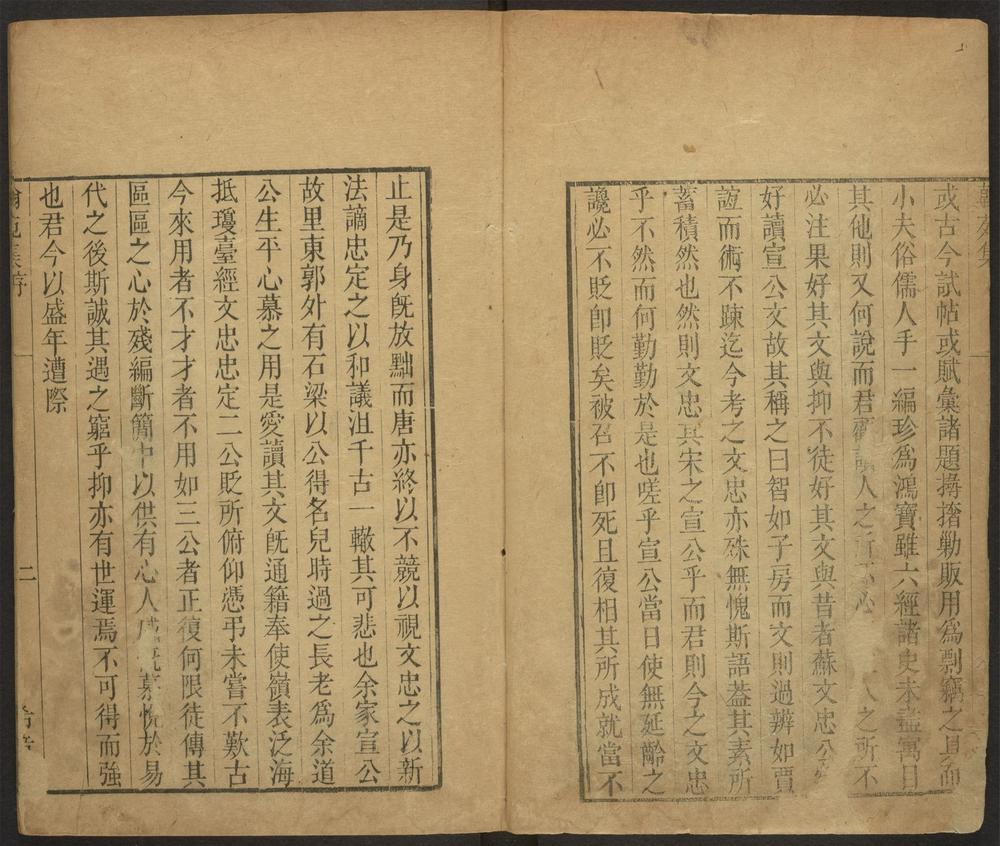 或古今試帖或賦彙諸題撏撦勦販用爲剽竊之具而
小夫俗儒人手一編珍爲鴻寶雖六經諸史未盡寓目
其他則又何說而君獨讀人之所不必人之所不
必注果好其文與抑不徒好其文與昔者蘇文忠公
好讀宣公文故其稱之曰智如子房而文則過辨如賈
誼而術不踈迄今考之文忠亦殊無愧斯語葢其素所
蓄積然也然則文忠其宋之宣公乎而君則今之文忠
乎不然而何勤勤於是也嗟乎宣公當日使無延齡之
讒必不貶卽貶矣被召不卽死且復相其所成就當不
止是乃身旣放黜而唐亦終以不競以視文忠之以新
法謫忠定之以和議沮千古一轍其可悲也余家宣公
故里東郭外有石梁以公得名兒時過之長老爲余道
公生平心慕之用是愛讀其文旣通籍奉使嶺表泛海
抵瓊臺經文忠忠定二公貶所俯仰憑弔未嘗不歎古
今來用者不才才者不用如三公者正復何限徒傳其
區區之心於殘編斷簡中以供有心人感慕悅於易
代之後斯誠其遇之窮乎抑亦有世運焉不可得而強
也君今以盛年遭際
翰苑集序
二